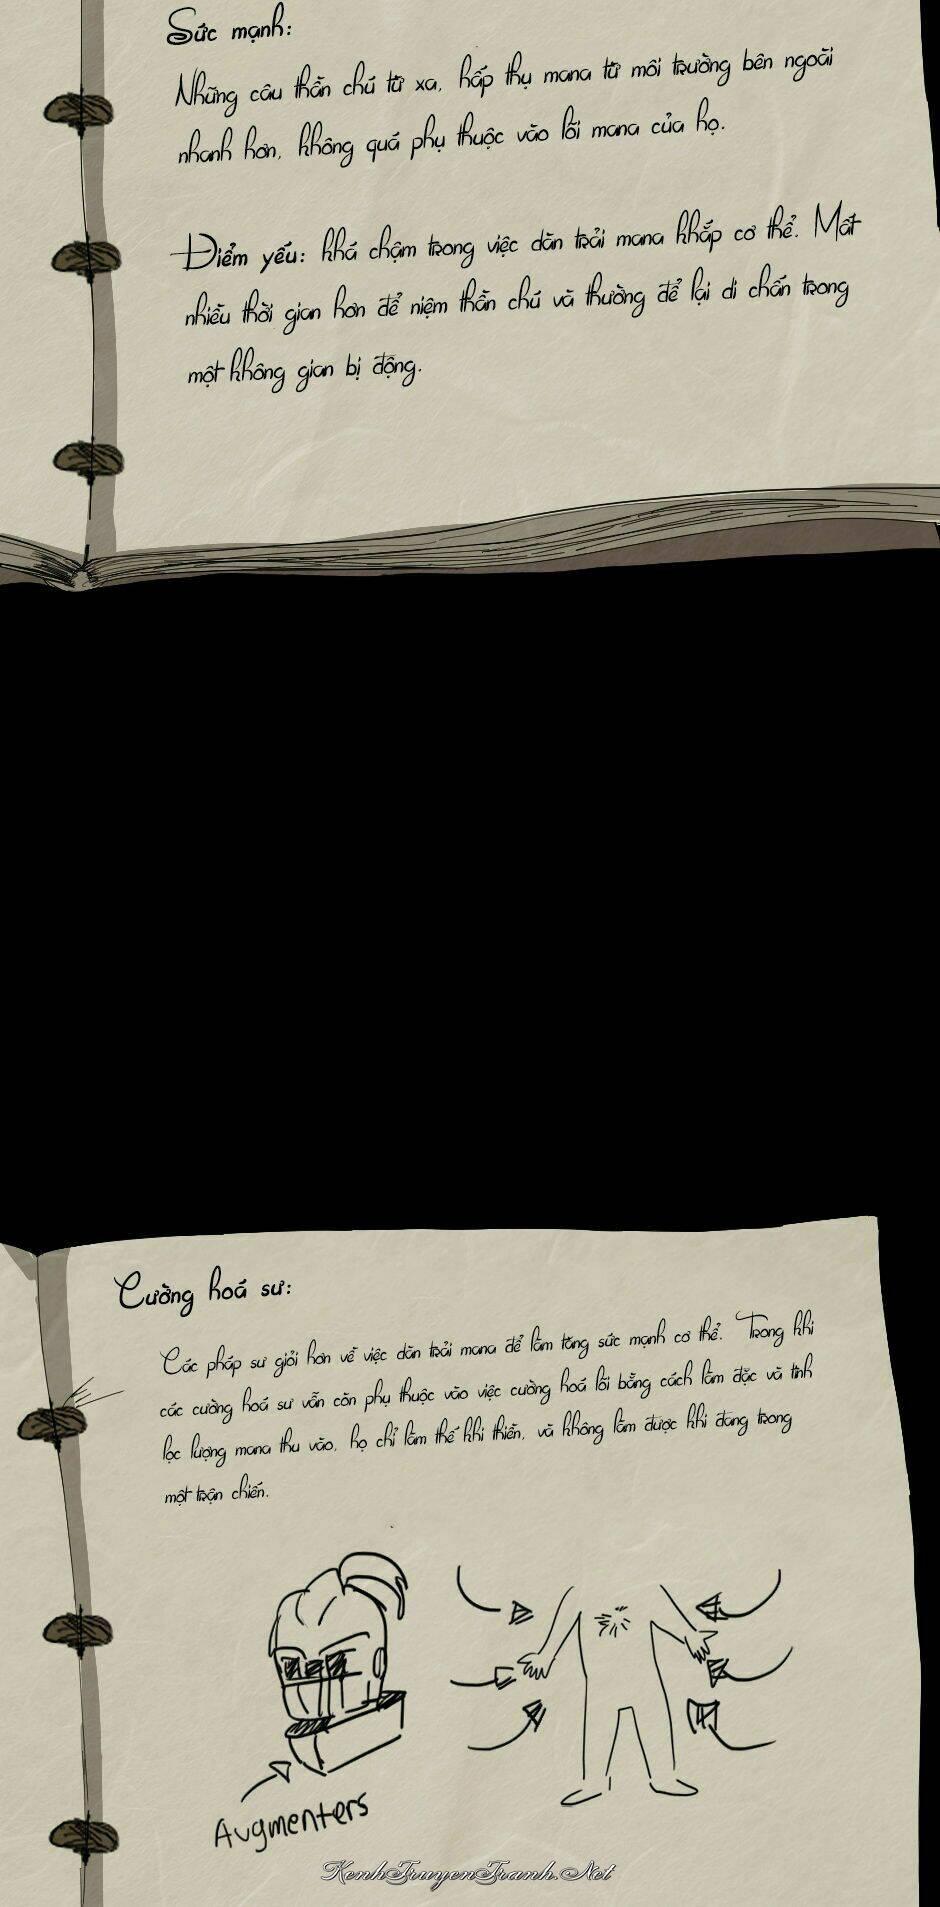 Sức mạnh:
Những câu thần chú từ xa, hấp thụ mana từ môi trường bên ngoài
nhanh hơn, không quá phụ thuộc vào lõi mana của họ.
Điểm yếu: khá chậm trong việc dàn trải mana khắp cơ thể. Mất
nhiều thời gian hơn để niệm thần chú và thường để lại di chấn trong
một không gian bị động.
Cường hoá sư:
Các pháp sư giỏi hơn về việc dàn trải mana để làm tăng sức mạnh cơ thể. Trong khi
các cường hoá sư vẫn còn phụ thuộc vào việc cường hoá lõi bằng cách làm đặc và tinh
lọc lượng mana thu vào, họ chỉ làm thế khi thiền, và không làm được khi đang trong
một trận chiến.
Augmenters
KenhTruyenTranh.Net